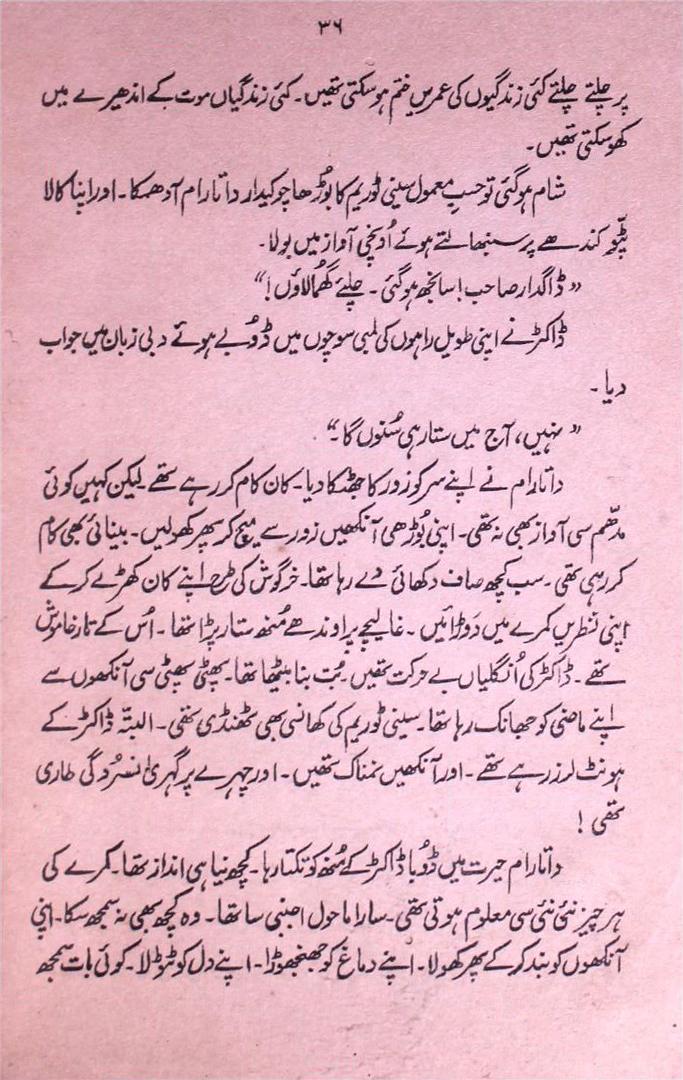 ۳۶
پر چلتے چلتے کئی زندگیوں کی عمریں ختم ہو سکتی تھیں۔ کئی زندگیاں موت کے اندھیرے میں
کھو سکتی تھیں۔
شام ہو گئی تو حسبِ معمول سینی ٹوریم کا بوُڑھا چوکیدار داتا رام آدھمکا۔ اور اپنا کالا
ٹپّو کندھے پر سنبھالتے ہوئے اُونچی آواز میں بولا۔
”ڈاگدار صاحب! سانجھ ہو گئی۔ چلئے گھُمالاؤں!“
ڈاکٹر نے اپنی طویل راہوں کی لمبی سوچوں میں ڈوُبے ہوئے دبی زبان میں جواب
دیا۔
”نہیں، آج میں ستار ہی سُنوں گا۔“
داتا رام نے اپنے سر کو زور کا جھٹکا دیا۔ کان کام کر رہے تھے لیکن کہیں کوئی
مدّھم سی آواز بھی نہ تھی۔ اپنی بوُڑھی آنکھیں زور سے میچ کر پھر کھولیں۔ بینائی بھی کام
کر رہی تھی۔ سب کچھ صاف دکھائی دے رہا تھا۔ خرگوش کی طرح اپنے کان کھڑے کر کے
اپنی نظریں کمرے میں دَوڑائیں۔ غالیچے پر اوندھے مُنھ ستار پڑا تھا۔ اُس کے تار خاموش
تھے۔ ڈاکٹر کی اُنگلیاں بے حرکت تھیں۔ بُت بنا بیٹھا تھا۔ پھٹی پھٹی سی آنکھوں سے
اپنے ماضی کو جھانک رہا تھا۔ سینی ٹوریم کی کھانسی بھی ٹھنڈی تھی۔ البتّہ ڈاکٹر کے
ہونٹ لرز رہے تھے۔ اور آنکھیں نمناک تھیں۔ اور چہرے پر گہری افسُردگی طاری
تھی!
داتا رام حیرت میں ڈوُبا ڈاکٹر کے مُنھ کو تکتا رہا۔ کچھ نیا ہی انداز تھا۔ کمرے کی
ہر چیز نئی نئی سی معلوم ہوتی تھی۔ سارا ماحول اجنبی سا تھا۔ وہ کچھ بھی نہ سمجھ سکا۔ اپنی
آنکھوں کو بند کر کے پھر کھولا۔ اپنے دماغ کو جھنجھوڑا۔ اپنے دل کو ٹٹولا۔ کوئی بات سمجھ